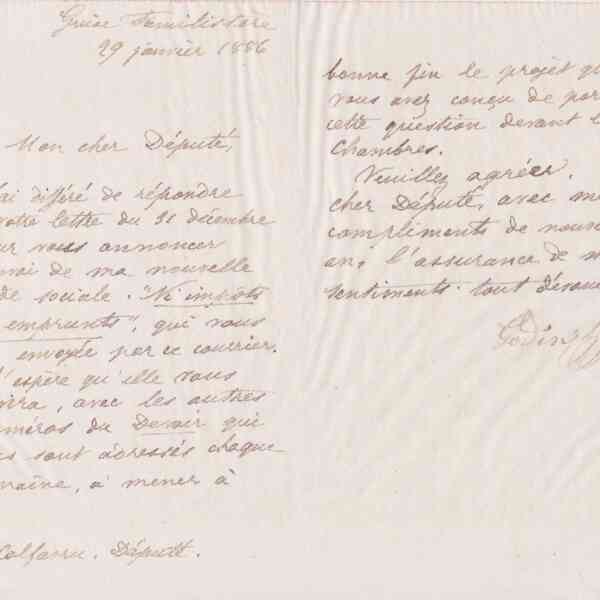 Guise Familistère
29 janvier 1886
Mon cher Député,
ai différé de répondre
votre lettre du 31 décembre
ur vous annoncer
nvoi de ma nouvelle
de sociale. "Ni impôts
emprunts", qui vous
envoyée par ce courrier.
'espère qu'elle vous
vira, avec les autres
méros du Devoir qui
us sont adressés chaque
maine, à mener à
Colfavru. Député.
bonne fin le projet qu
vous avez conçu de por
cette question devant l
Chambres.
Veuillez agréer,
cher Député, avec me
compliments de nouv
an, l'assurance de m
sentiments tout dévoué
Godin